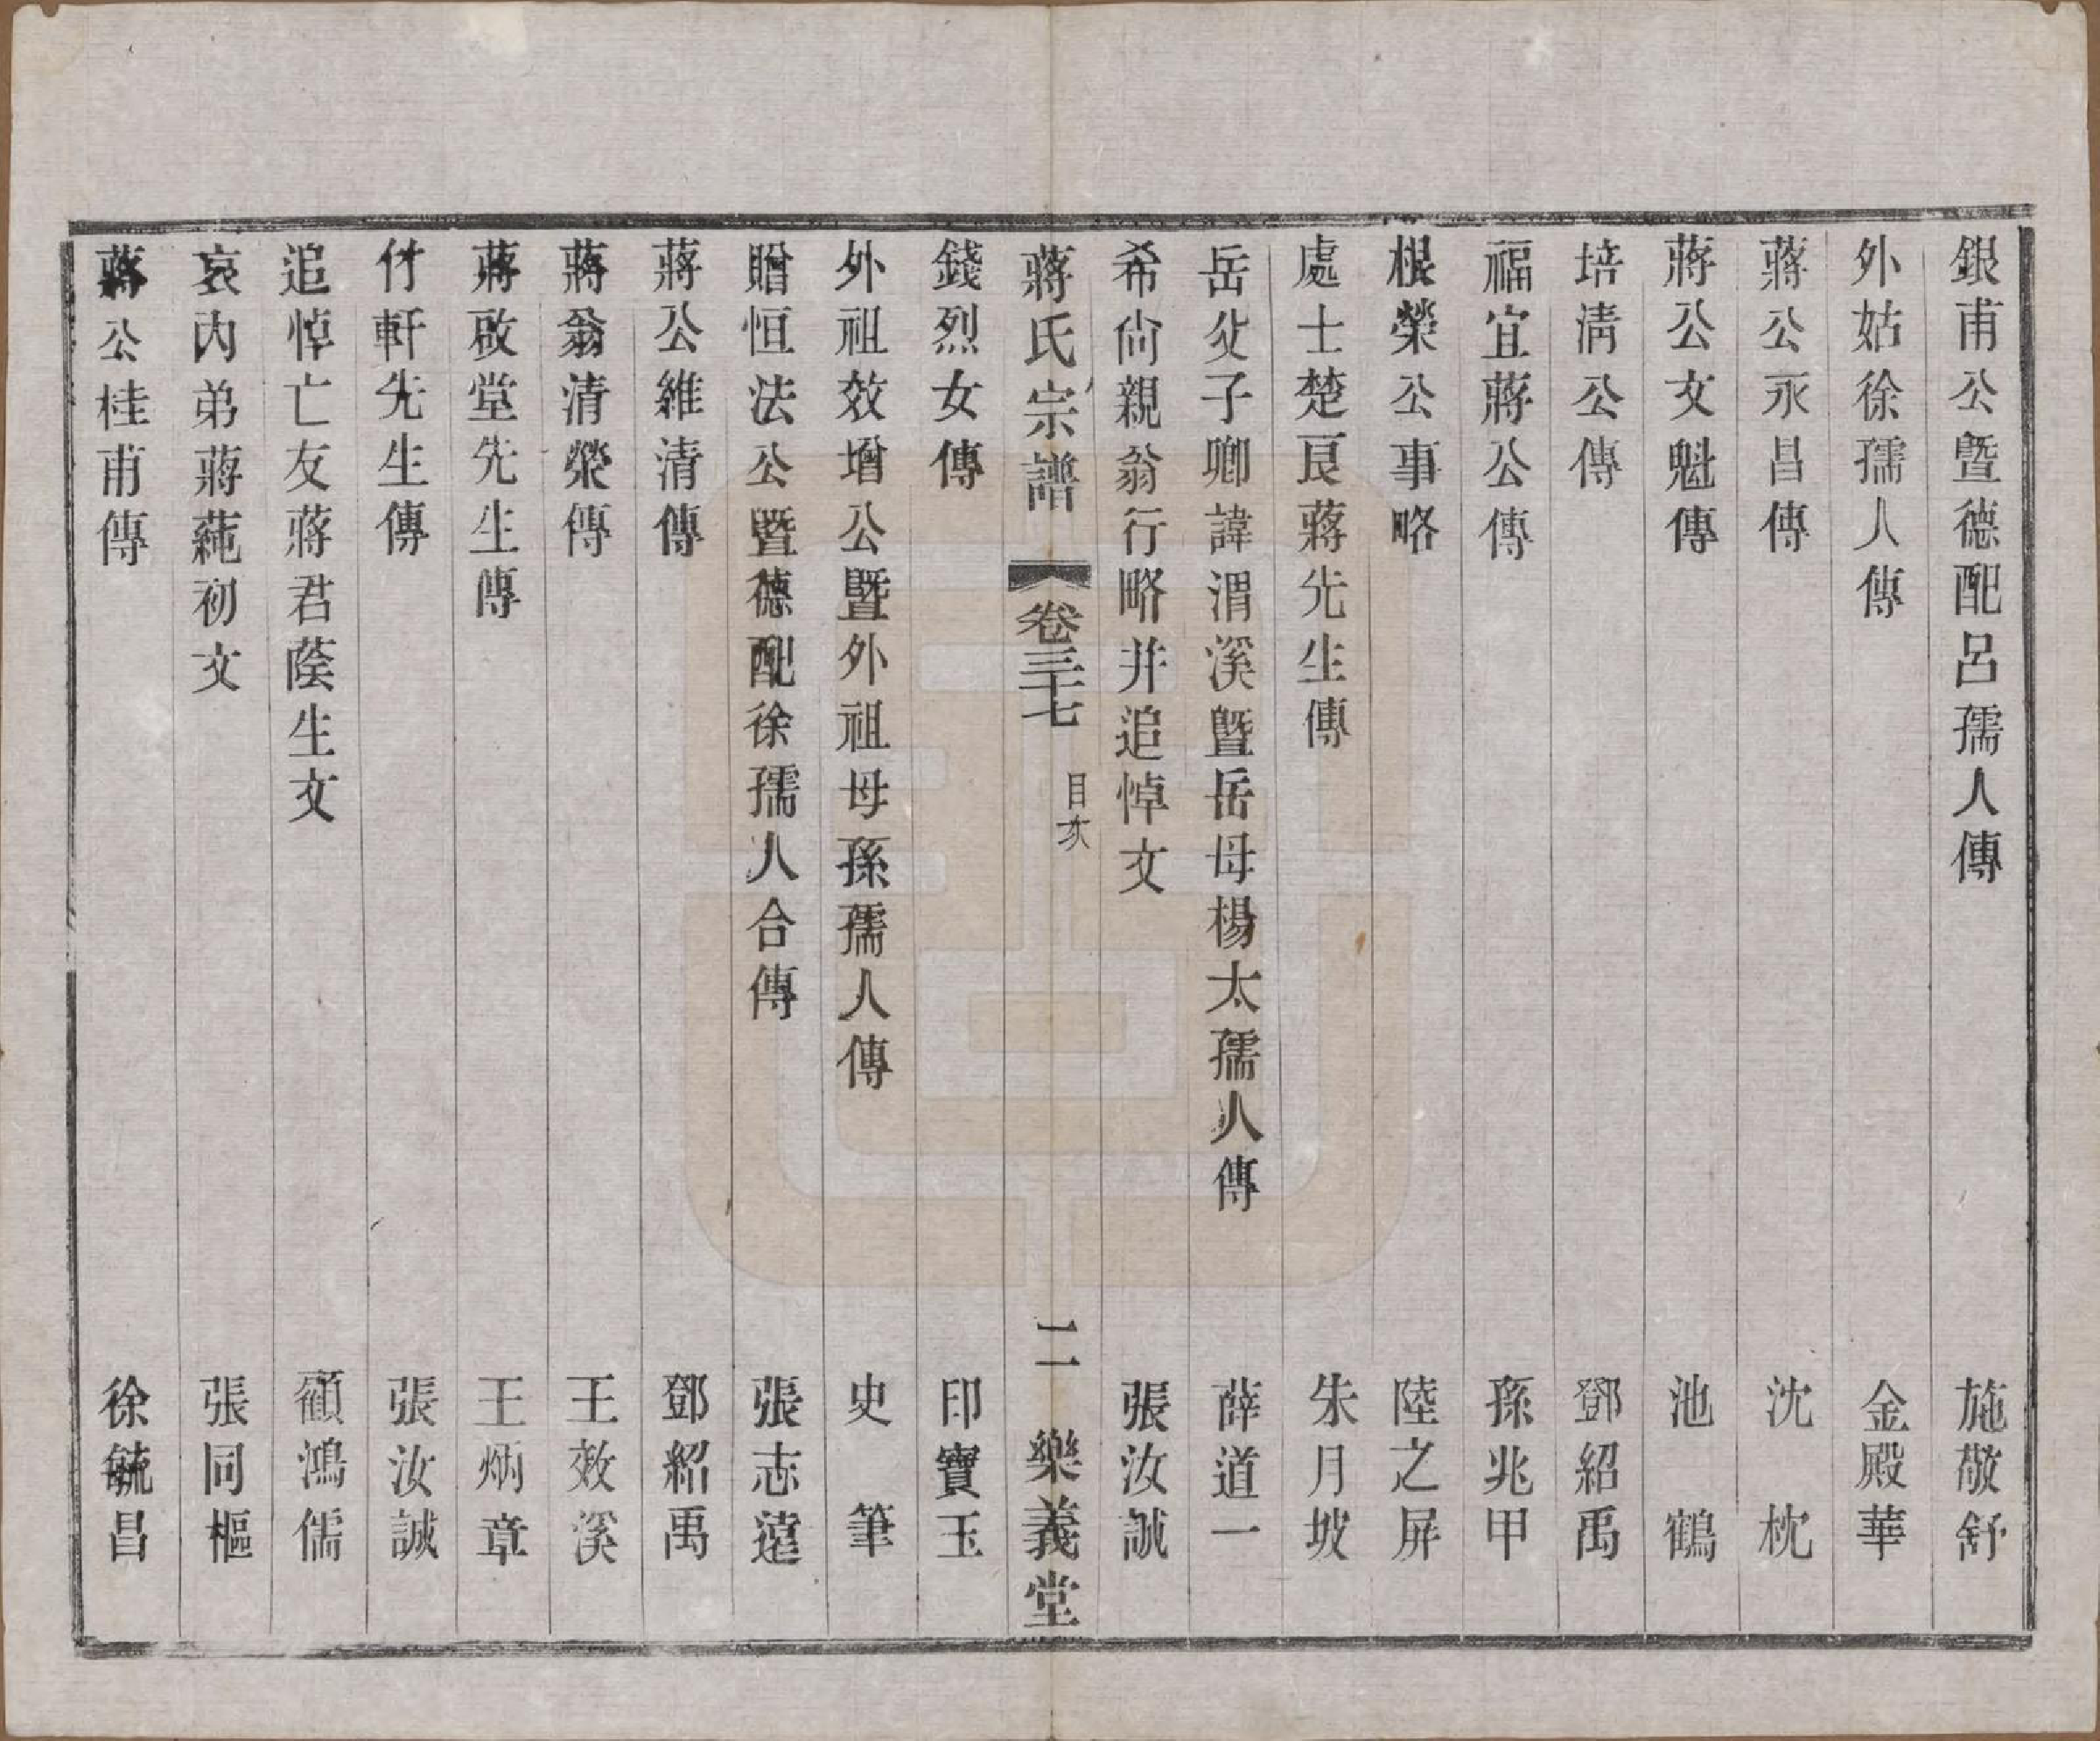 銀甫公暨德配呂孺人傳 施敬舒
外姑徐孺人傳 金殿華
蔣公永昌傳 沈枕
蔣公文魁傳 池鶴
培淸公傳 鄧紹禹
福宜蔣公傳 孫兆甲
根榮公事略 陸之屏
處士楚艮蔣先生傳 朱月坡
岳父子卿諱渭溪暨岳母楊太孺人傳 薛道一
希尙親翁行略并追悼文 張汝誠
蔣氏宗譜 卷三十七 目次 二 樂義堂
錢烈女傳 印寶玉
外祖效增公暨外祖母孫孺人傳 史筆
贈恒法公暨德配徐孺人合傳 張志遠
蔣公維清傳 鄧紹禹
蔣翁清榮傳 王效溪
蔣啟堂先生傳 王炳章
付軒先生傳 張汝誠
追悼亡友蔣君蔭生文 顧鴻儒
哀內弟蔣蒓初文 張同樞
蔣公桂甫傳 徐毓昌